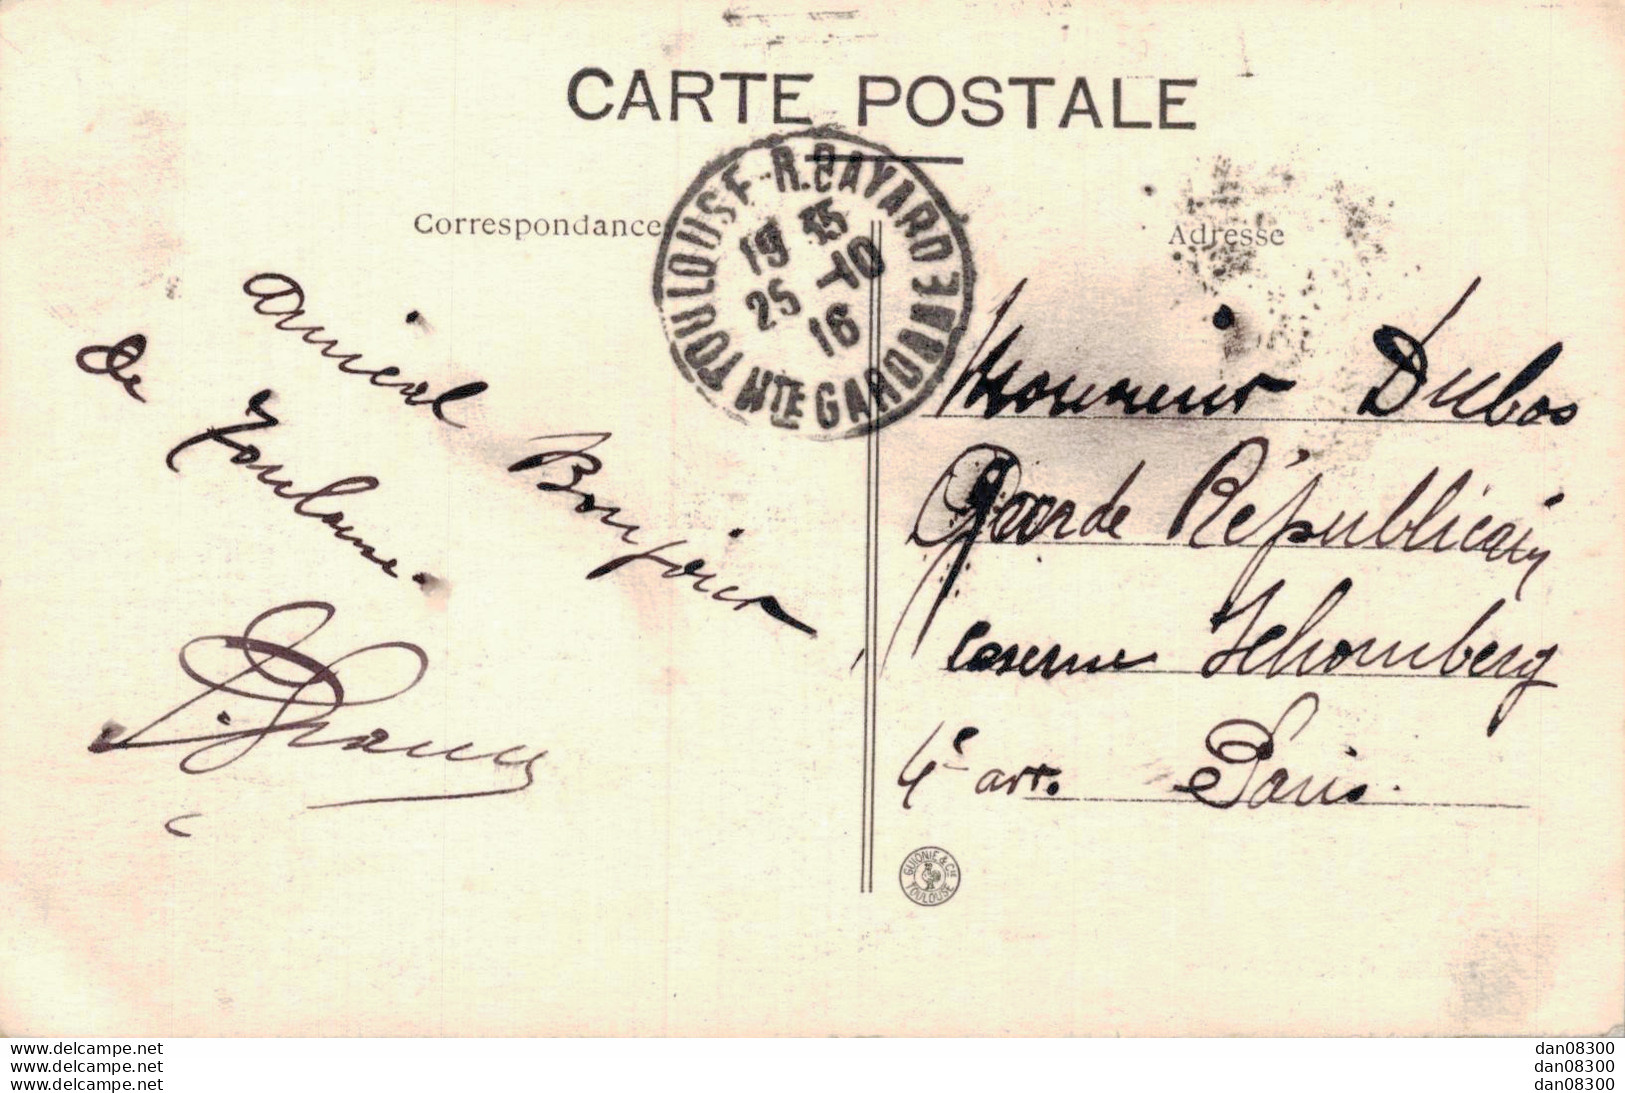 CARTE POSTALE
TOULOUSE - R. BAYARD
HTE GARONNE
19 35
25 -10
16
Correspondance
Adresse
amical Bonjour
de Toulouse.
Monsieur Dubos
Garde Républicain
caserne Schomberg
4e arr. Paris.
GUIONIE & Cie
TOULOUSE
www.delcampe.net
www.delcampe.net
www.delcampe.net
dan08300
dan08300
dan08300